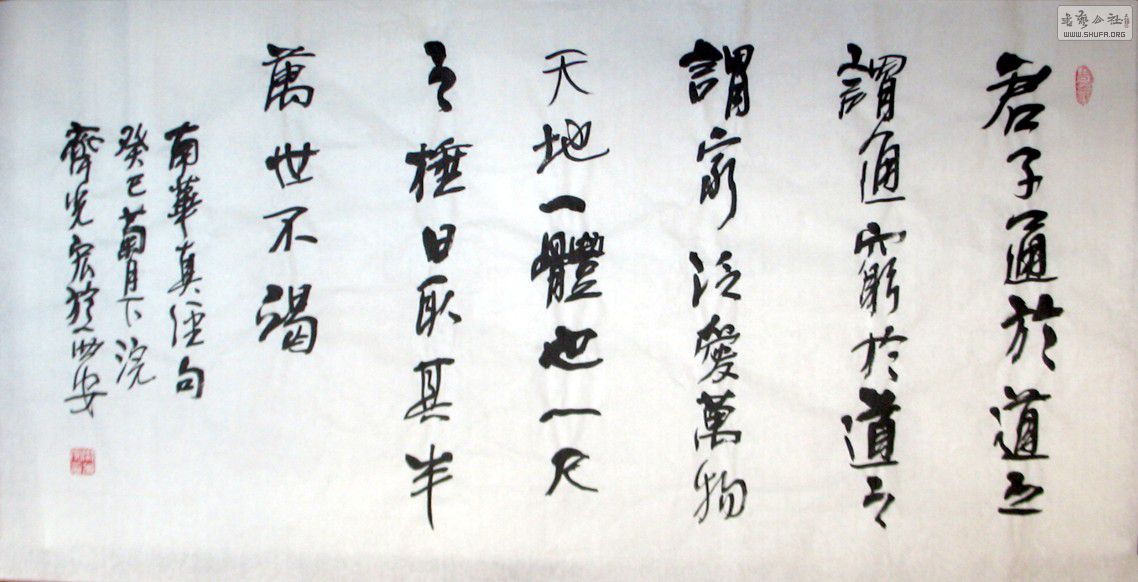 君子通於道之
謂通窮於道之
謂窮泛愛萬物
天地一體也一尺
之棰日取其半
萬世不竭
南華真經句
癸巳菊月下浣
齊光宏於西安
书艺公社
WWW.SHUFA.ORG